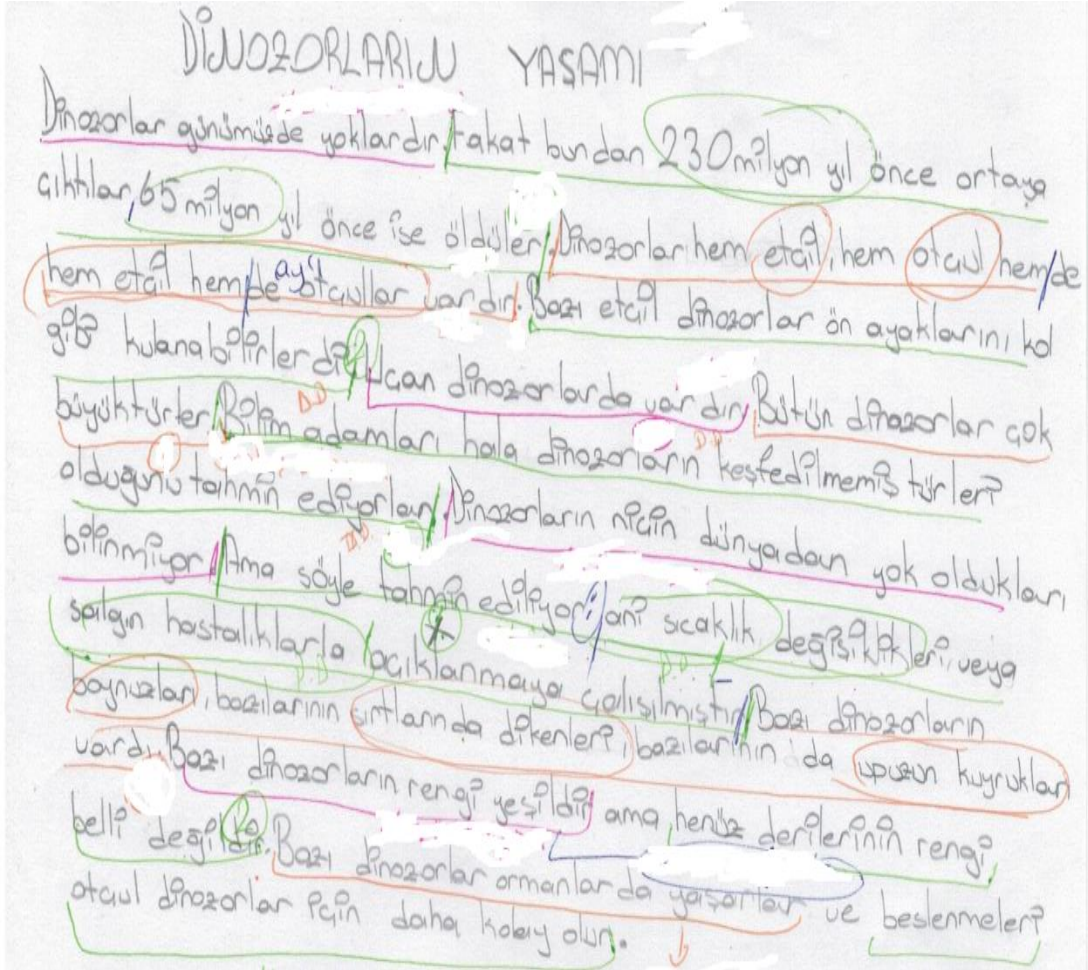 DİNOZORLARIN YAŞAMI
Dinozorlar günümüzde yoklardır, fakat bundan 230 milyon yıl önce ortaya
çıktılar, 65 milyon yıl önce ise öldüler. Dinozorlar hem etçil, hem otçul hem de
hem etçil hem de otçullar vardır. Bazı etçil dinozorlar ön ayaklarını kol
gibi kulanabilirlerdi. Uçan dinozorlarda vardır. Bütün dinozorlar çok
büyüktürler. Bilim adamları hala dinozorların keşfedilmemiş türleri
olduğunu tahmin ediyorlar. Dinozorların niçin dünyadan yok oldukları
bilinmiyor. Ama söyle tahmin ediliyor: ani sıcaklık değişiklikleri, veya
salgın hastalıklarla açıklanmaya çalışılmıştır. Bazı dinozorların
boynuzları, bazılarının sırtlarında dikenleri, bazılarının da upuzun kuyrukları
vardı. Bazı dinozorların rengi yeşildir ama henüz derilerinin rengi
belli değildir. Bazı dinozorlar ormanlar da yaşarlar ve beslenmeleri
otçul dinozorlar için daha kolay olur.